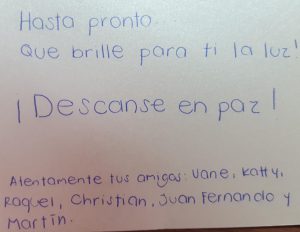 Hasta pronto.
Que brille para ti la luz!
¡Descanse en paz!
Atentamente tus amigos: Vane, Katty,
Raquel, Christian, Juan Fernando y
Martín.